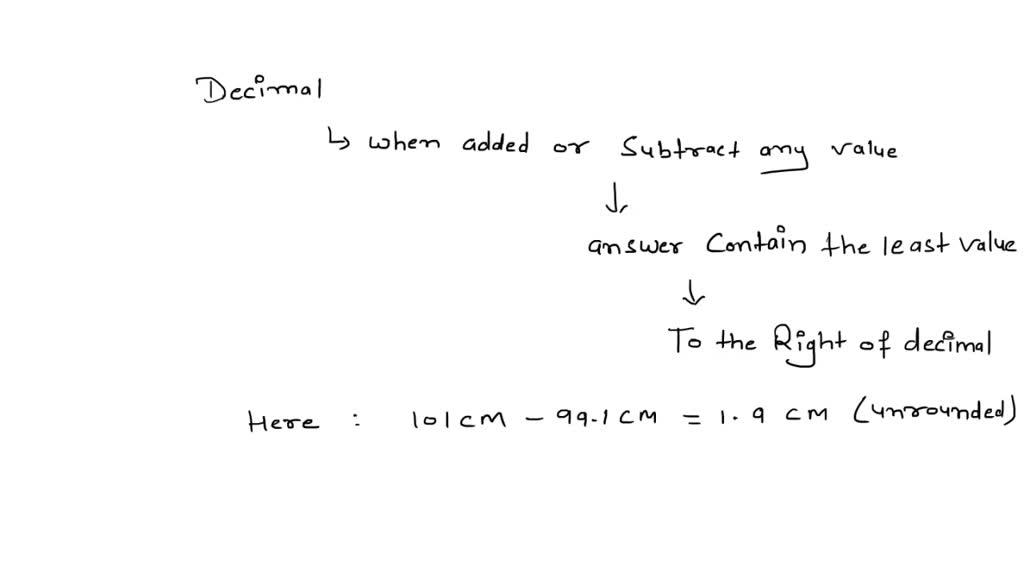 Decimal
↳ when added or Subtract any value
↓
answer Contain the least value
↓
To the Right of decimal
Here : 101 cm - 99.1 cm = 1.9 cm (unrounded)